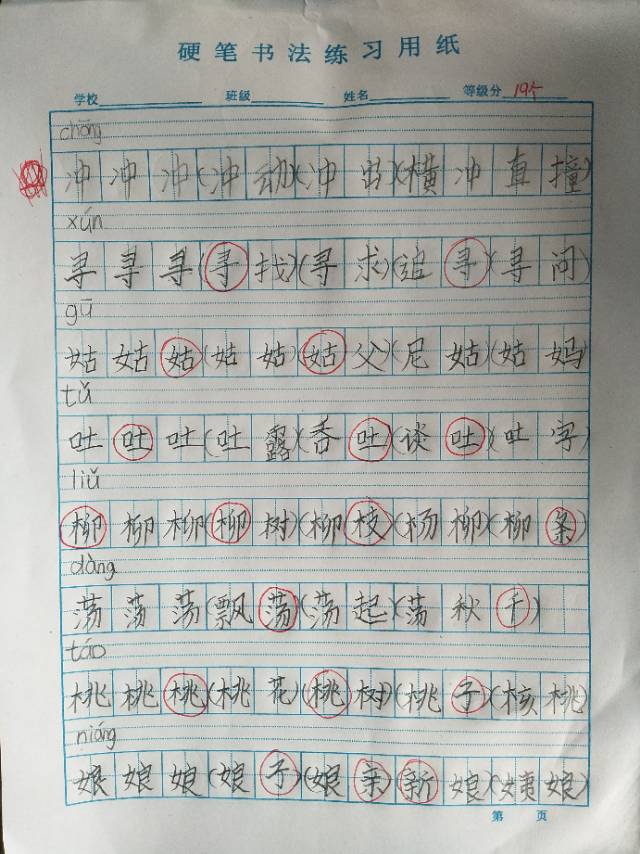 硬笔书法练习用纸
学校 班级 姓名 等级分 19个
chōng
冲冲冲(冲动)(冲出)(横冲直撞)
xún
寻寻寻(寻找)(寻求)(追寻)(寻问)
gū
姑姑姑(姑姑)(姑父)(尼姑)(姑妈)
tǔ
吐吐吐(吐露)(吞吐)(谈吐)(吐字)
liǔ
柳柳柳(柳树)(柳枝)(杨柳)(柳条)
dàng
荡荡荡(飘荡)(荡起)(荡秋千)
táo
桃桃桃(桃花)(桃树)(桃子)(核桃)
niáng
娘娘娘(娘子)(娘亲)(新娘)(姨娘)
第 页